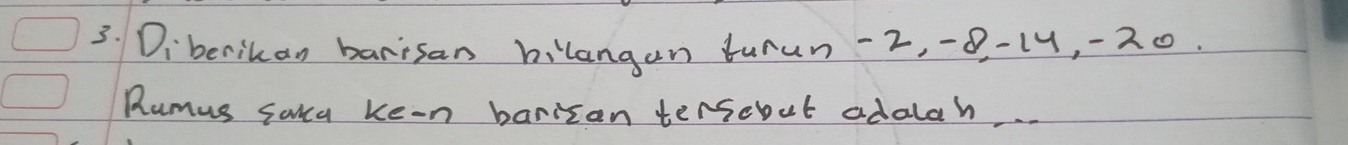 3. Diberikan barisan bilangan turun -2, -8, -14, -20.
Rumus suku ke-n barisan tersebut adalah ...